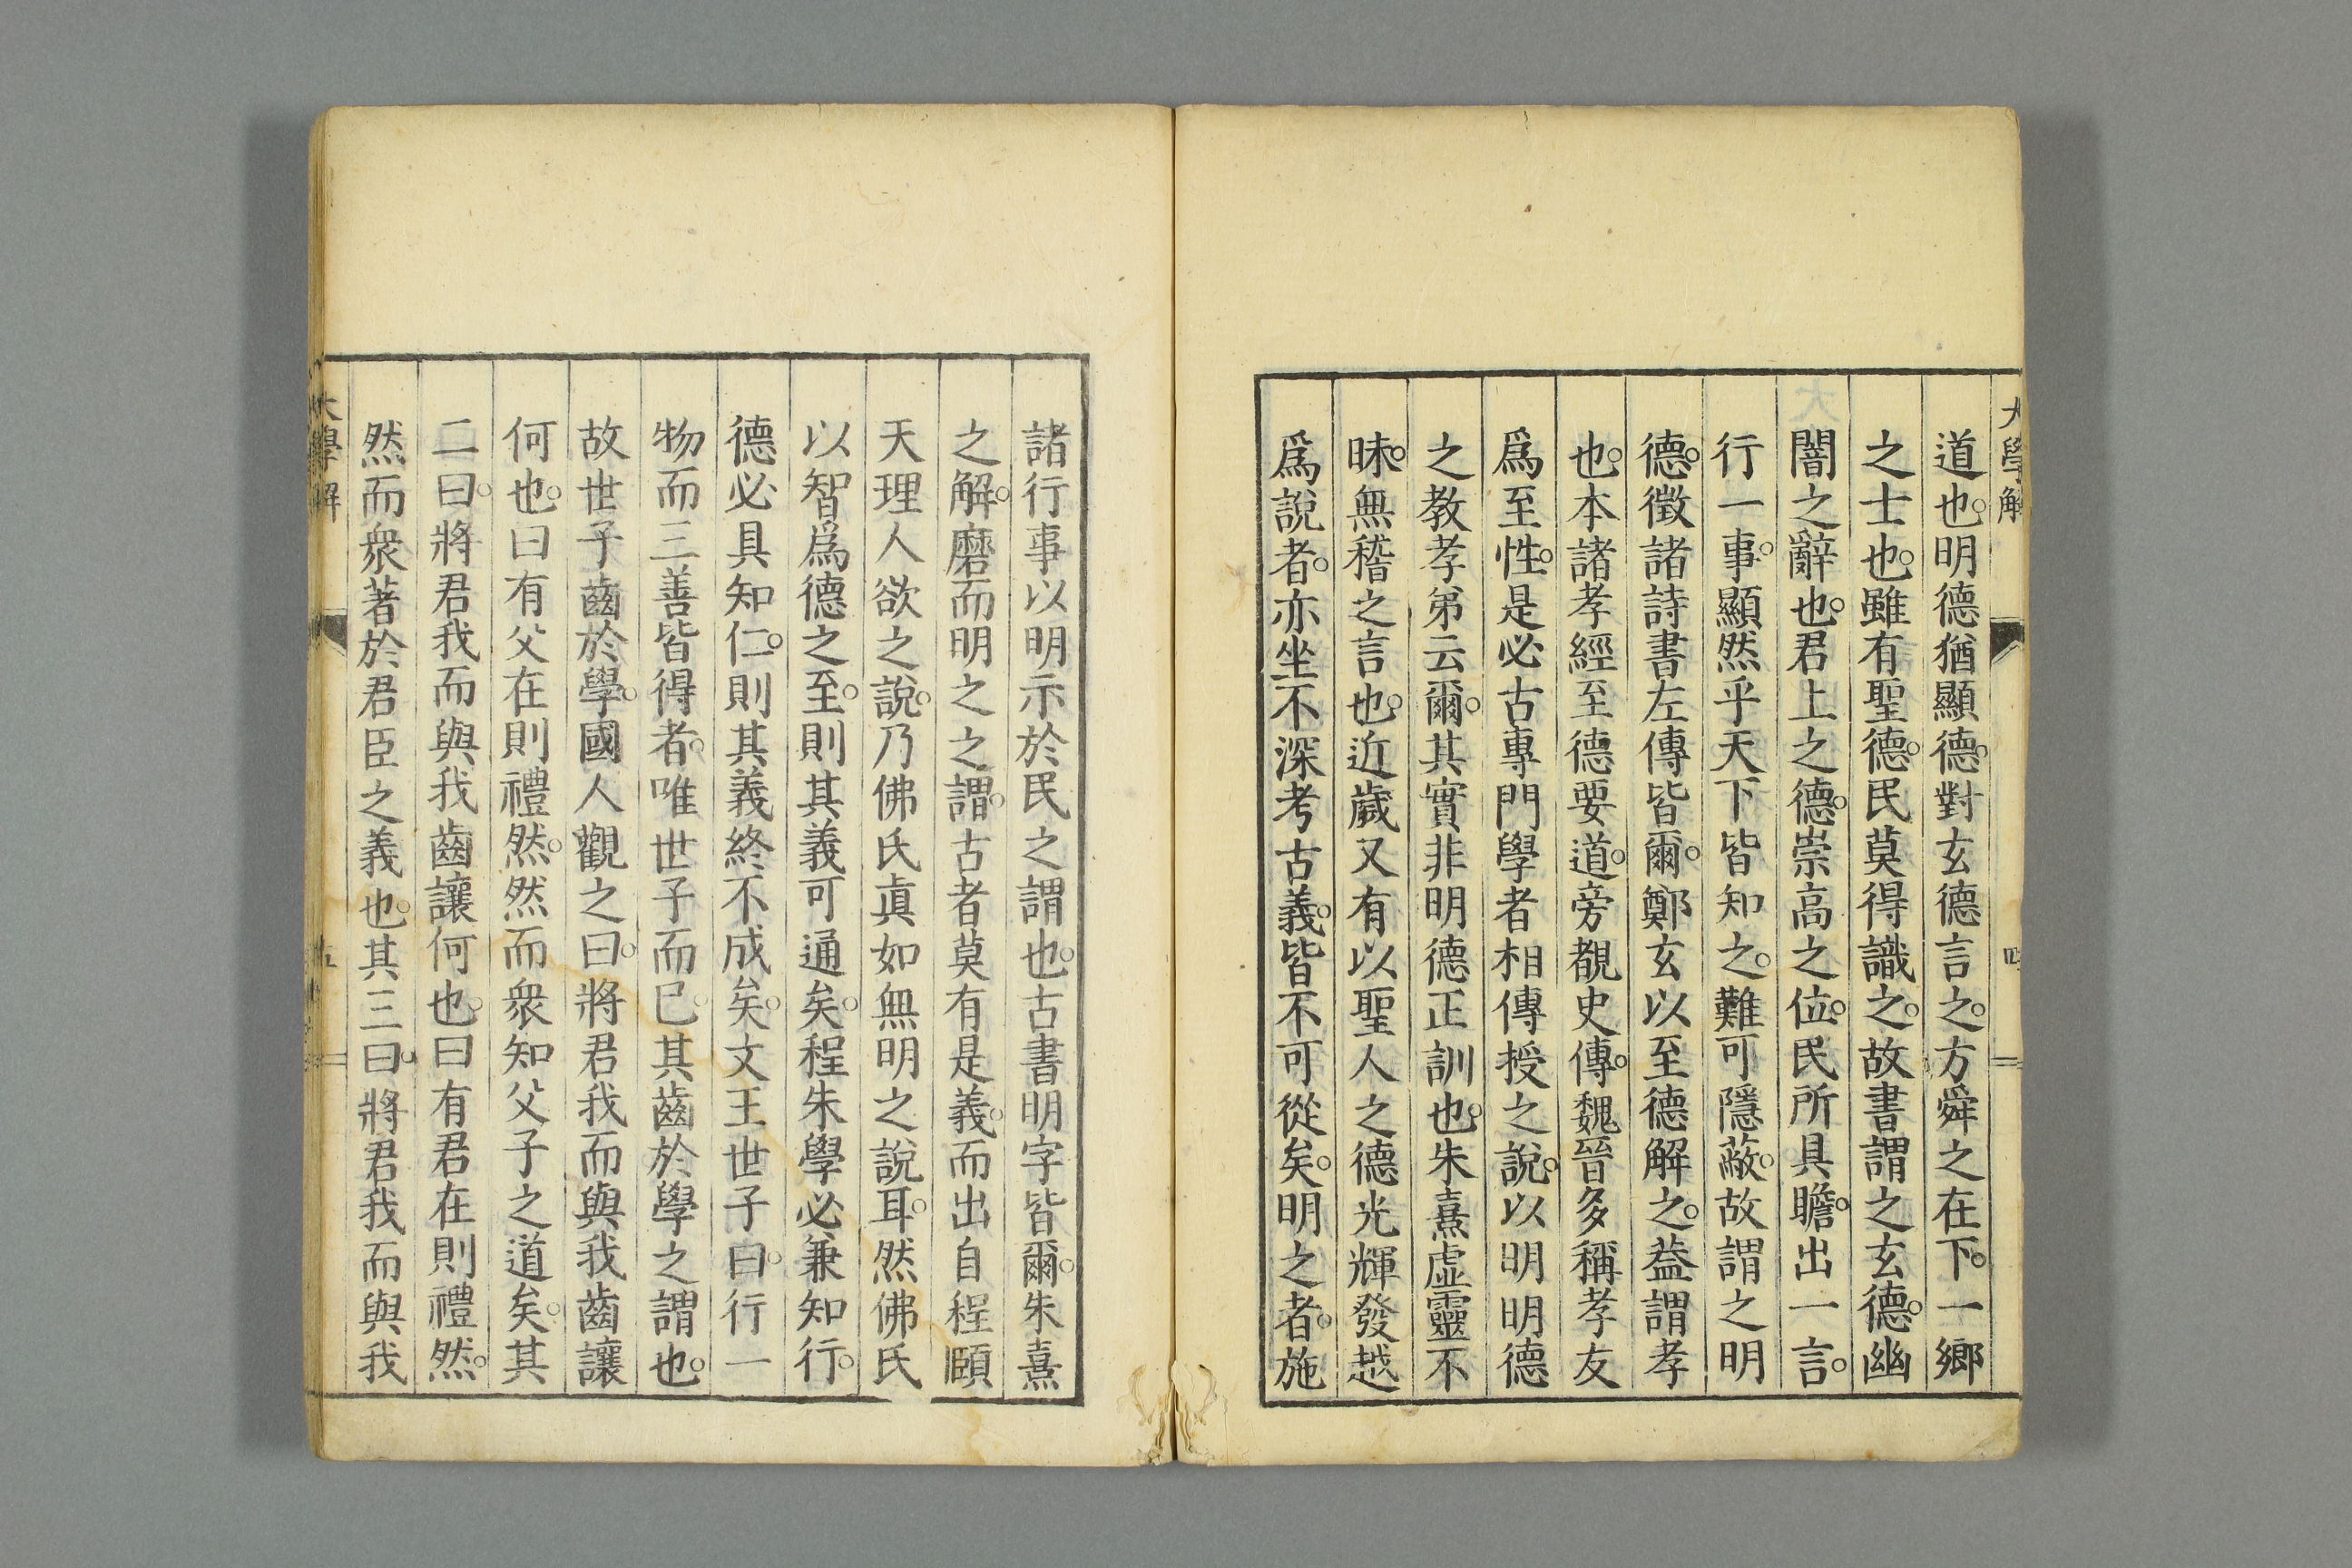 大學解 四
道也。明德猶顯德。對玄德言之。方舜之在下。一鄉
之士也。雖有聖德。民莫得識之。故書謂之玄德。幽
闇之辭也。君上之德。崇高之位。民所具瞻。出一言。
行一事。顯然乎天下皆知之。難可隱蔽。故謂之明
德。徵諸詩書左傳皆爾。鄭玄以至德解之。葢謂孝
也。本諸孝經至德要道。旁覩史傳。魏晉多稱孝友
爲至性。是必古專門學者相傳授之說。以明明德
之教孝弟云爾。其實非明德正訓也。朱熹虛靈不
昧。無稽之言也。近歲又有以聖人之德光輝發越
爲說者。亦坐不深考古義。皆不可從矣。明之者。施
諸行事以明示於民之謂也。古書明字皆爾。朱熹
之解。磨而明之之謂。古者莫有是義。而出自程頤
天理人欲之說。乃佛氏眞如無明之說耳。然佛氏
以智爲德之至。則其義可通矣。程朱學必兼知行。
德必具知仁。則其義終不成矣。文王世子曰。行一
物而三善皆得者。唯世子而已。其齒於學之謂也。
故世子齒於學。國人觀之曰。將君我而與我齒讓
何也。曰有父在則禮然。然而衆知父子之道矣。其
二曰。將君我而與我齒讓何也。曰有君在則禮然。
然而衆著於君臣之義也。其三曰。將君我而與我
大學解 五